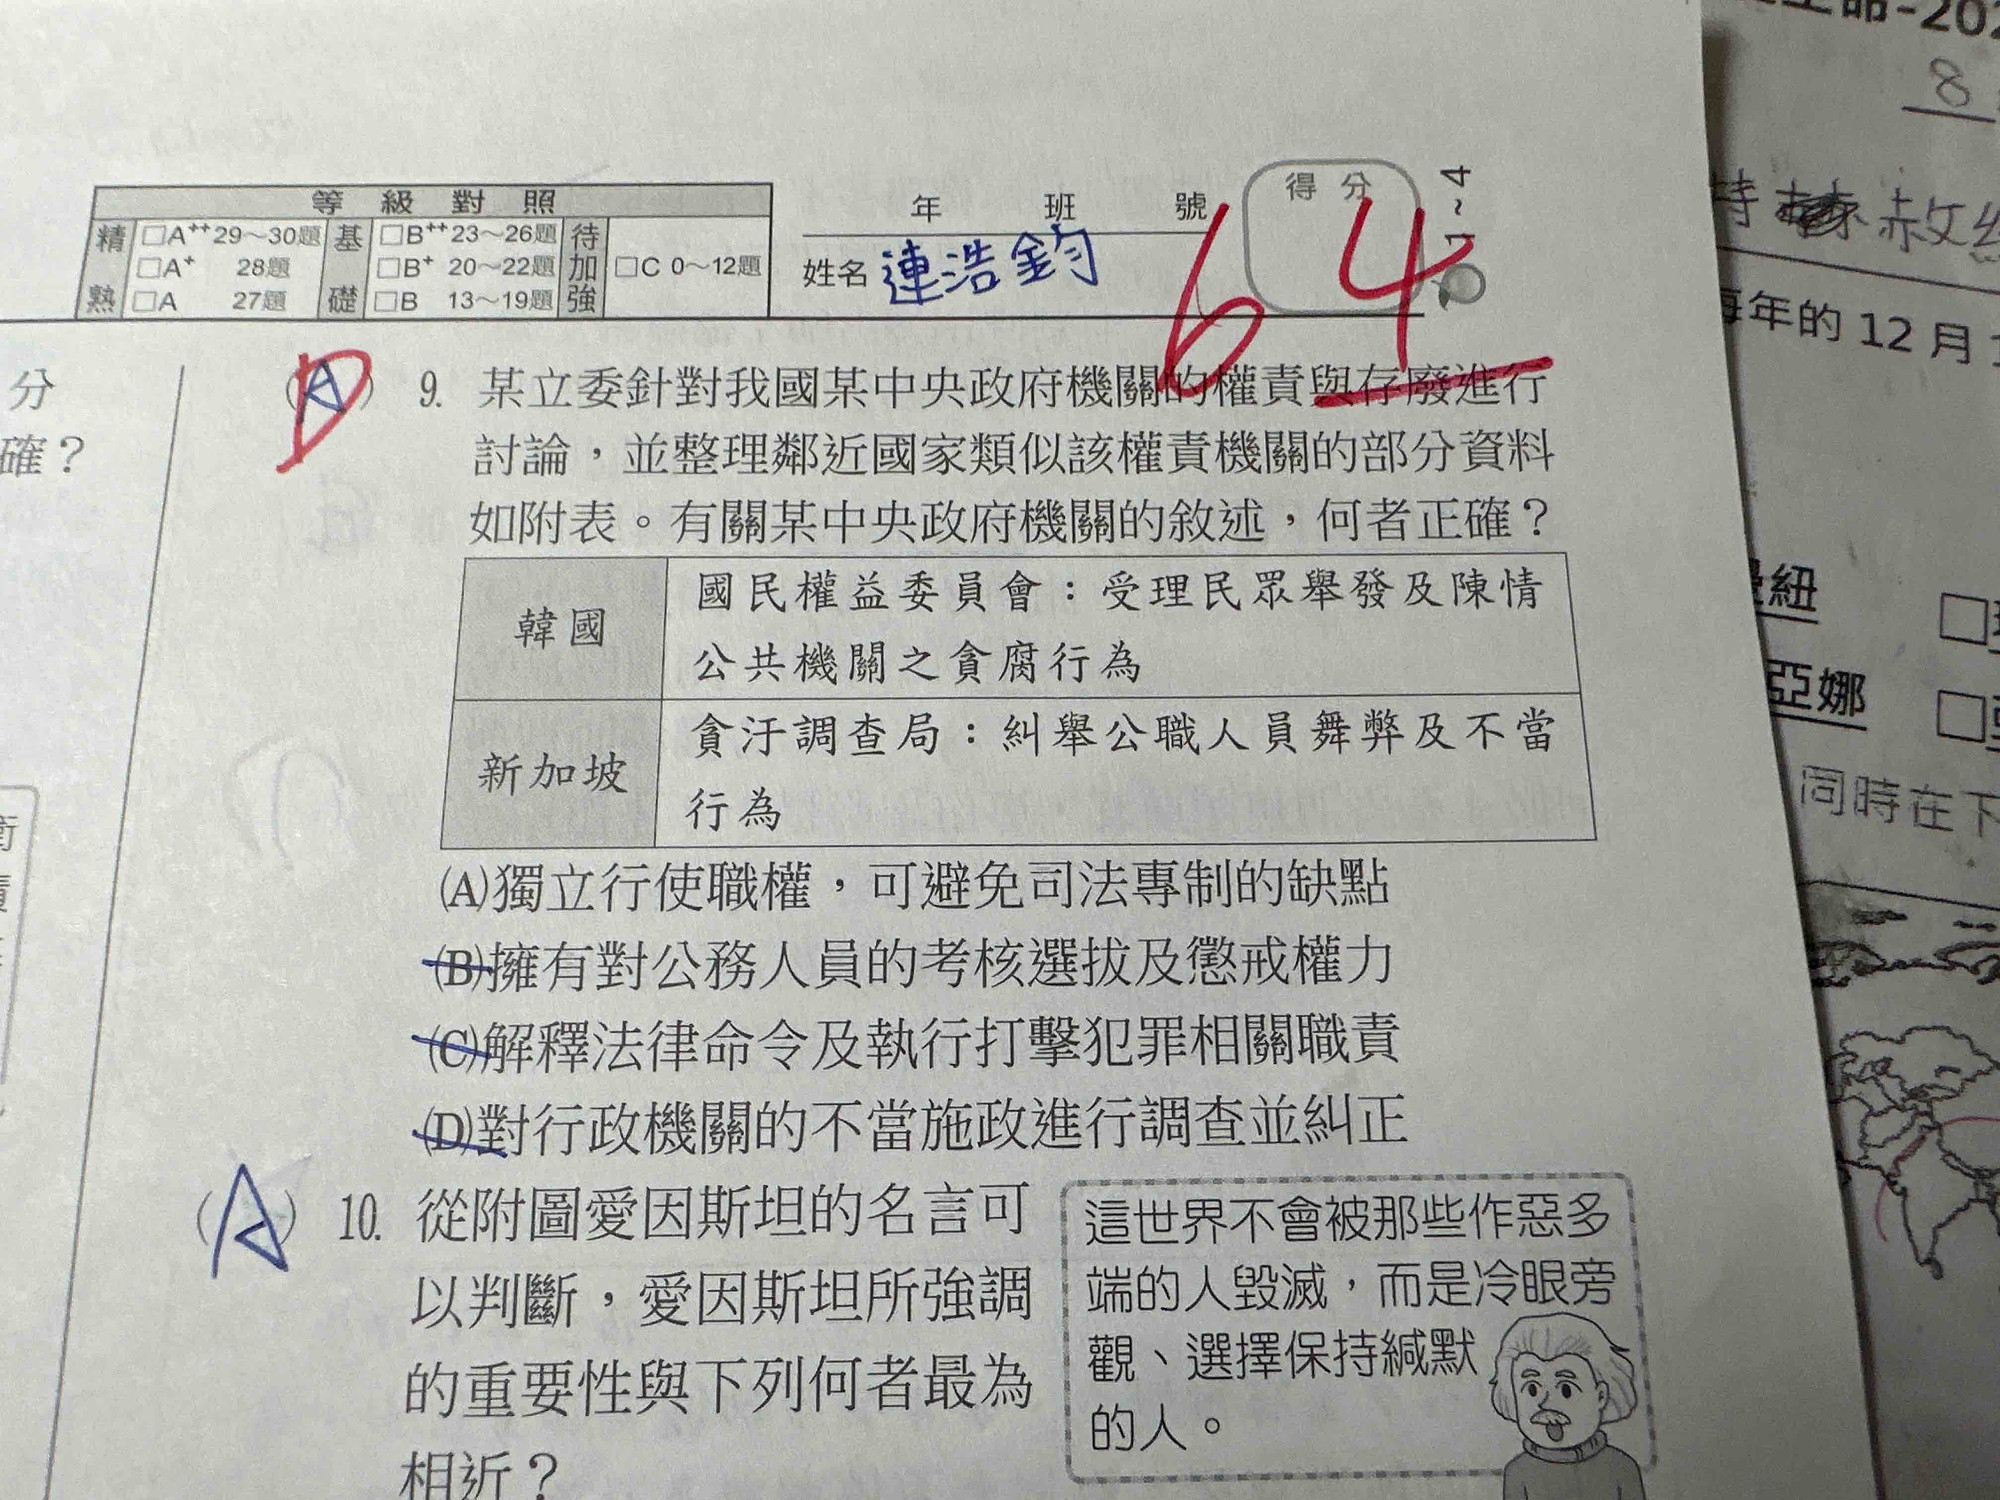 等級對照
精熟 □A++ 29～30題 基礎 □B++ 23～26題 待加強 □C 0～12題
□A+ 28題 □B+ 20～22題
□A 27題 □B 13～19題
年 班 號
姓名 連浩鈞
得分
64
1～4
分
確？
(A) D 9. 某立委針對我國某中央政府機關的權責與存廢進行
討論，並整理鄰近國家類似該權責機關的部分資料
如附表。有關某中央政府機關的敘述，何者正確？
韓國 國民權益委員會：受理民眾舉發及陳情
公共機關之貪腐行為
新加坡 貪汙調查局：糾舉公職人員舞弊及不當
行為
(A)獨立行使職權，可避免司法專制的缺點
(B)擁有對公務人員的考核選拔及懲戒權力
(C)解釋法律命令及執行打擊犯罪相關職責
(D)對行政機關的不當施政進行調查並糾正
(A) 10. 從附圖愛因斯坦的名言可
以判斷，愛因斯坦所強調
的重要性與下列何者最為
相近？
這世界不會被那些作惡多
端的人毀滅，而是冷眼旁
觀、選擇保持緘默
的人。
8
赦
每年的 12 月
紐 □
亞娜 □
同時在下